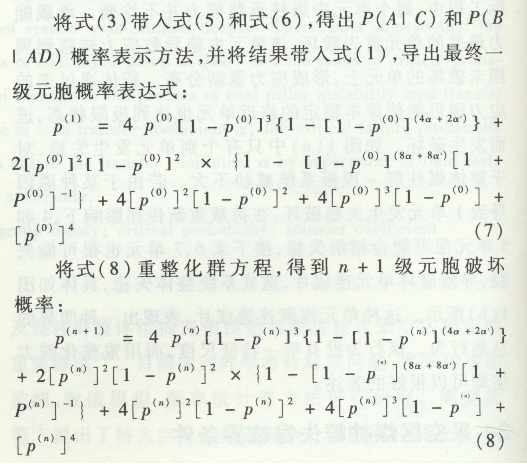 将式(3)带入式(5)和式(6),得出 P(A| C) 和 P(B
| AD) 概率表示方法,并将结果带入式(1),导出最终一
级元胞概率表达式:
p^(1) = 4 p^(0)[1 - p^(0)]^3{1 - [1 - p^(0)]^(4α + 2α′)} +
2[p^(0)]^2[1 - p^(0)]^2 × {1 - [1 - p^(0)]^(8α + 8α′)[1 +
P^(0)]^-1} + 4[p^(0)]^2[1 - p^(0)]^2 + 4[p^(0)]^3[1 - p^(0)] +
[p^(0)]^4 (7)
将式(8)重整化群方程,得到 n + 1 级元胞破坏
概率:
p^(n+1) = 4 p^(n)[1 - p^(n)]^3{1 - [1 - p^(n)]^(4α + 2α′)}
+ 2[p^(n)]^2[1 - p^(n)]^2 × {1 - [1 - p^(n)]^(8α + 8α′)[1 +
P^(n)]^-1} + 4[p^(n)]^2[1 - p^(n)]^2 + 4[p^(n)]^3[1 - p^(n)] +
[p^(n)]^4 (8)